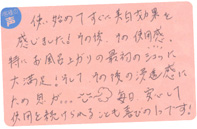 声
使い始めてすぐに美白効果を
感じました！その後、その使用感、
特にお風呂上がりの最初のシュッに
大満足！そしてその後の浸透感に
たの見が…
毎日安心して
使用を続けられることも喜びの1つです！